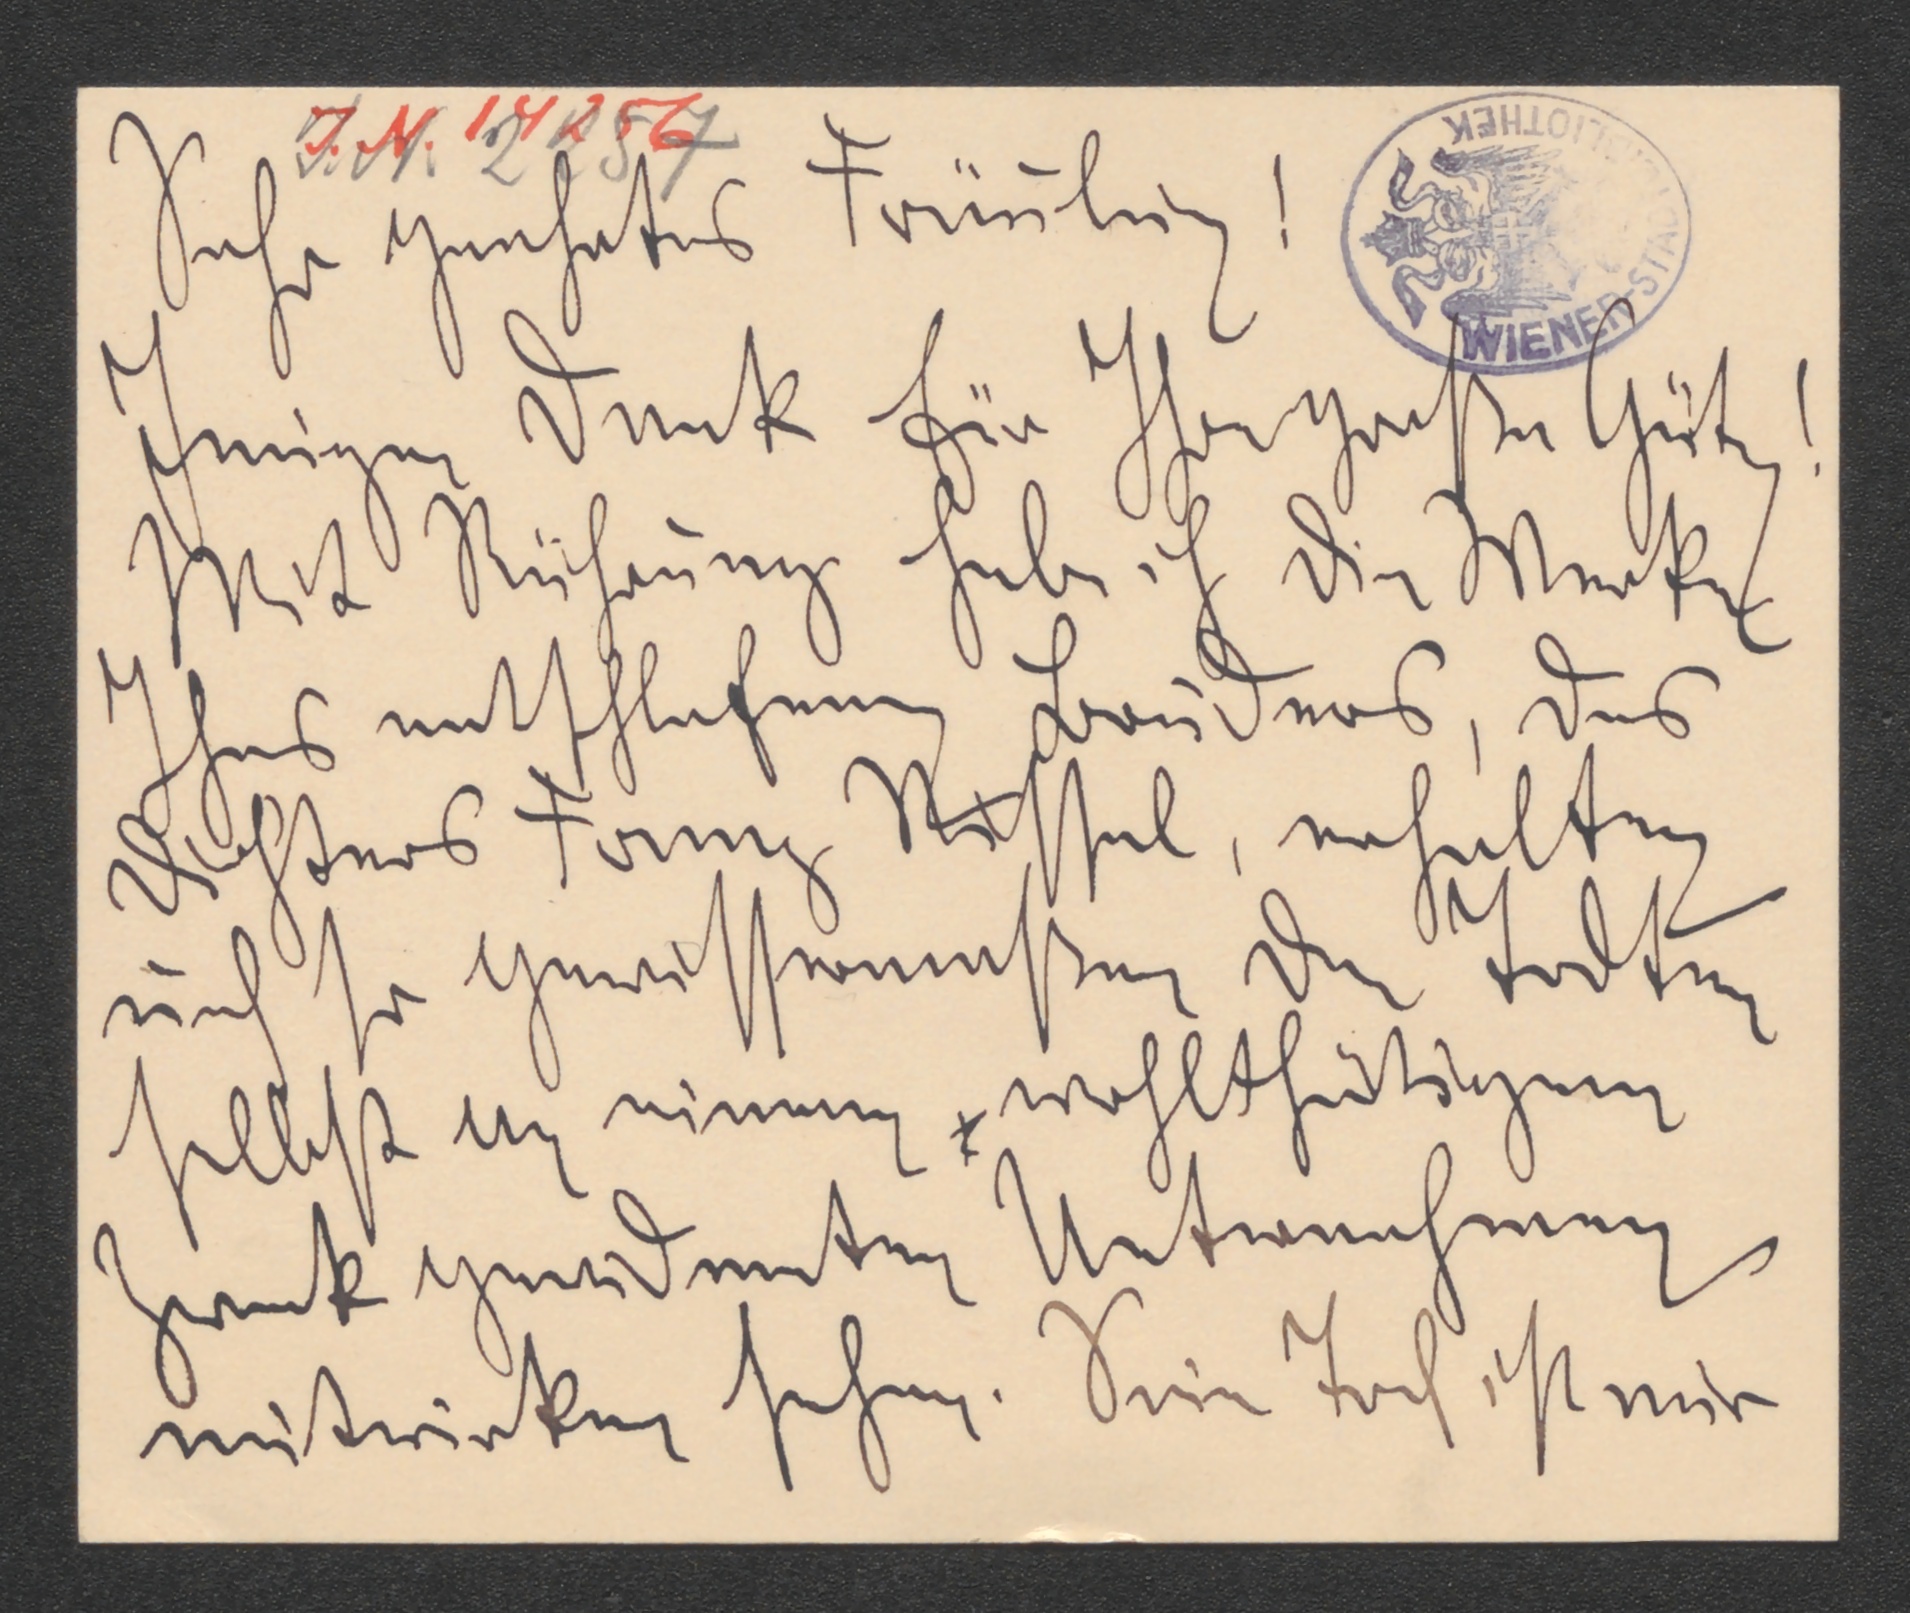 J. N. 14256
J. N. 2257
WIENER-STADTBIBLIOTHEK
Sehr geehrtes Fräulein!
Innigen Dank für Ihre große Güte!
Mit Rührung habe ich die Werke
Ihres entschlafenen Bruders, des
Dichters Franz Nissel, erhalten
und so gewissermaßen den Todten
selbst an einem, wohlthätigem
Zweck gewidmeten Unternehmen
mitwirken sehen. Sein Tod ist mir